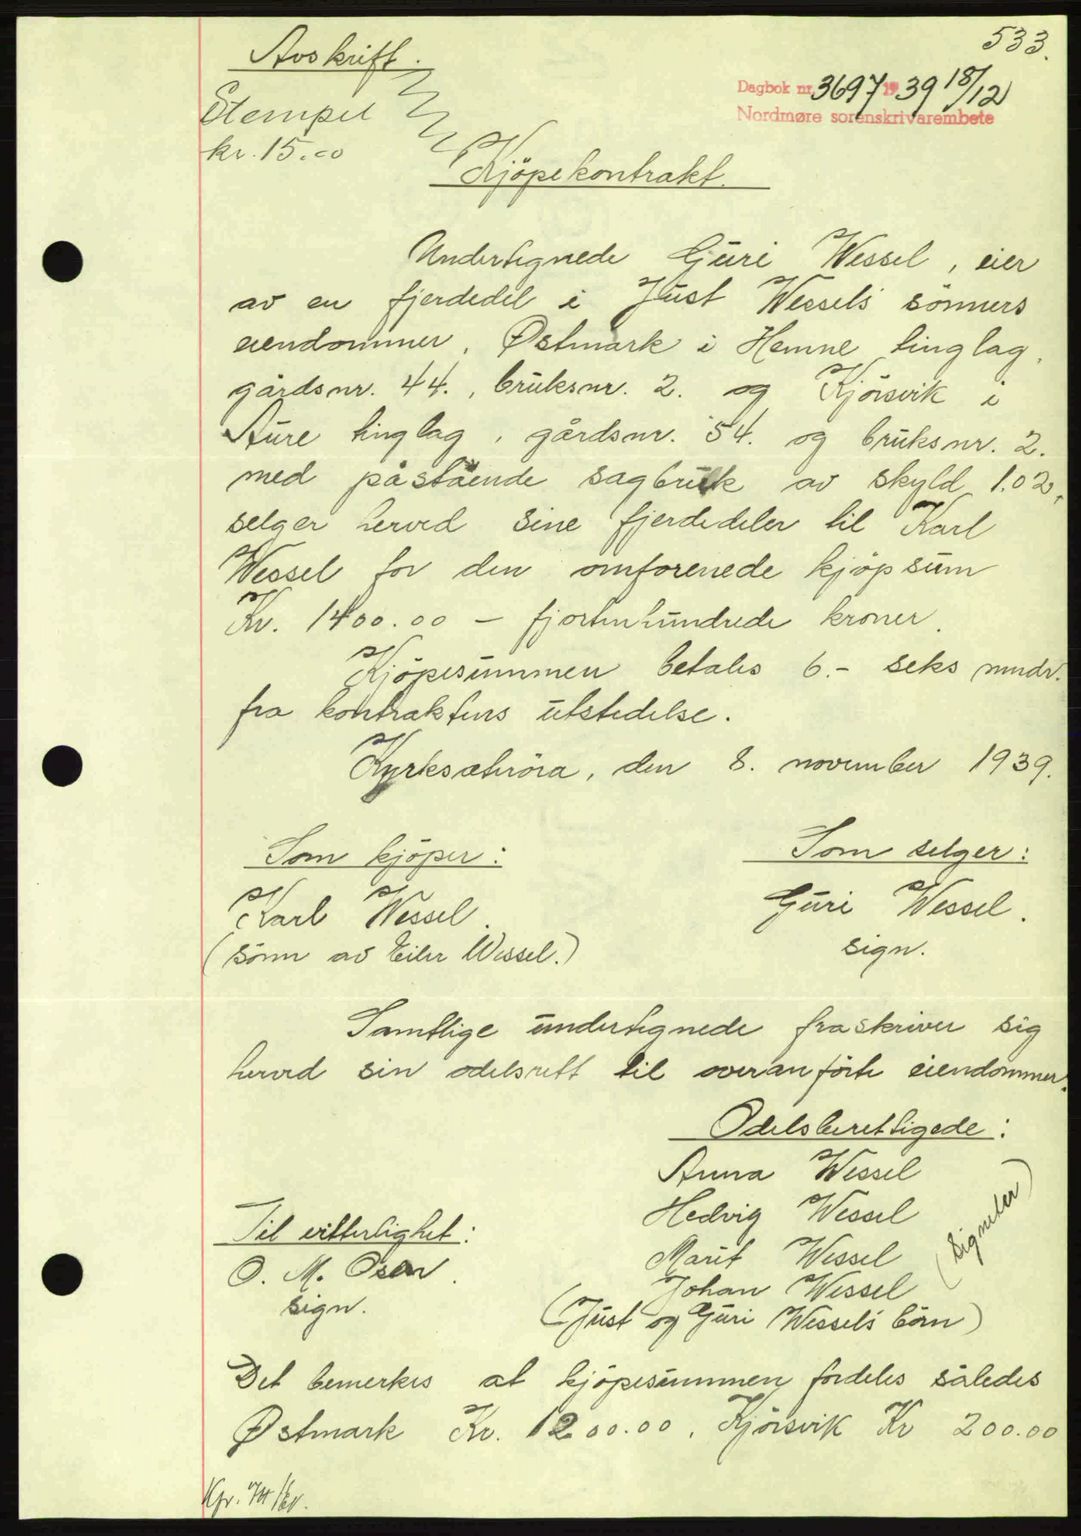 533.
Avskrift.
Dagbok nr. 3697 1939 18/12
Nordmøre sorenskrivarembete
Stempel
kr. 15.00
Kjöpekontrakt.
Undertegnede Guri Wessel, eier
av en fjerdedel i Just Wessels sönners
eiendommer, Østmark i Hemne tinglag,
gårdsnr. 44., bruksnr. 2. og Kjörsvik i
Aure tinglag, gårdsnr. 54. og bruksnr. 2.
med påstående sagbruk av skyld 1.02,
selger herved sine fjerdedeler til Karl
Wessel for den omforenede kjöpsum
Kr. 1400.00 - fjortenhundrede kroner.
Kjöpesummen betales 6.- seks mndr.
fra kontraktens utstedelse.
Kyrksæteröra, den 8. november 1939.
Som kjöper: Som selger:
Karl Wessel. Guri Wessel.
(sönn av Eiler Wessel.) sign.
Samtlige undertegnede fraskriver sig
herved sin odelsrett til overanförte eiendommer.
Odelsberettigede:
Anna Wessel
Hedvig Wessel
Til vitterlighet:
Marit Wessel
O. M. Osen.
Johan Wessel
(Signeter)
sign.
(Just og Guri Wessels börn)
Det bemerkes at kjöpesummen fordeles således
Østmark Kr. 1200.00, Kjörsvik Kr 200.00